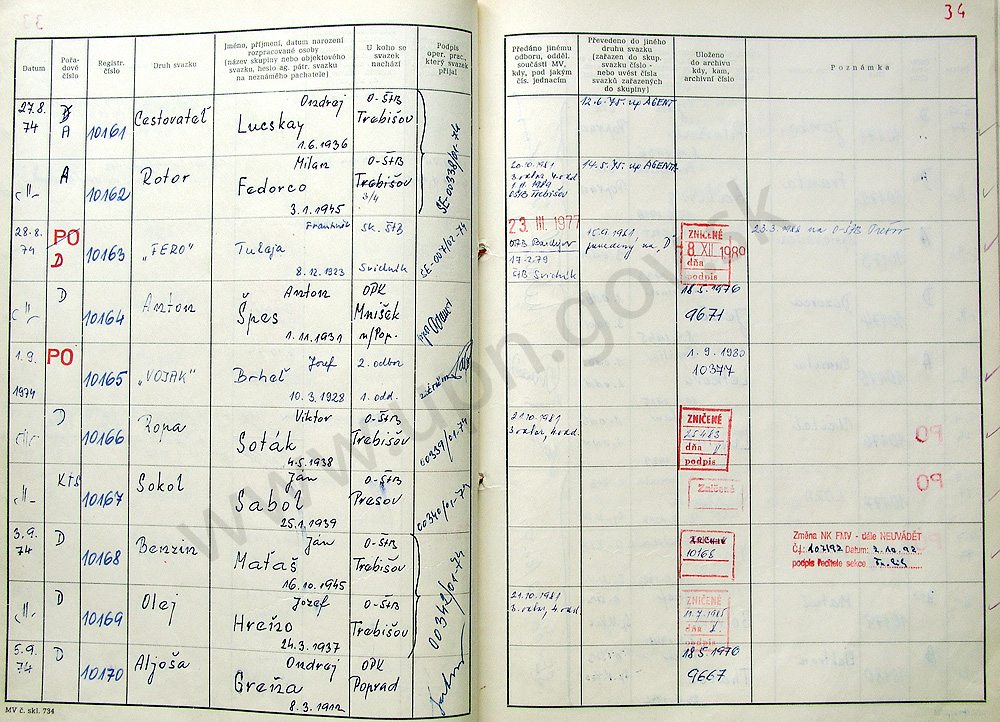 33
34
Datum
Pořa-
dové
číslo
Registr.
číslo
Druh svazku
Jméno, příjmení, datum narození
rozpracované osoby
(název skupiny nebo objektového
svazku, heslo ag. pátr. svazku
na neznámého pachatele)
U koho se
svazek
nachází
Podpis
oper. prac.,
který svazek
přijal
Předáno jinému
odboru, odděl.
součásti MV,
kdy, pod jakým
čís. jednacím
Převedeno do jiného
druhu svazku
(zařazen do skup.
svazku číslo -
nebo uvést čísla
svazků zařazených
do skupiny)
Uloženo
do archivu
kdy, kam,
archivní číslo
Poznámka
27.8.
74
A
10161
Cestovateľ
Ondrej
Lucskay
1.6.1936
O-ŠtB
Trebišov
SE-00338/01-74
12.6.75. up AGENT
-II-
A
10162
Rotor
Milan
Fedorco
3.1.1945
O-ŠtB
Trebišov
3/4
20.10.1981
1.11.1989
OŠtB Trebišov
14.5.75. up AGENTA
28.8.
74
PO
D
10163
"FERO"
František
Tulaja
8.12.1923
sk. ŠtB
Svidník
23. III. 1977
17.2.79
ŠtB Svidník
ZNIČENÉ
8. XII. 1980
dňa
podpis
-II-
D
10164
Anton
Anton
Špes
1.11.1931
OPK
Mníšek
n/Pop.
18.5.1976
9671
1.9.
1974
PO
10165
"VOJAK"
Jozef
Brheľ
10.3.1928
2. odbor
1. odd.
1.9.1980
10377
-II-
D
10166
Ropa
Viktor
Soták
4.5.1938
O-ŠtB
Trebišov
00339/01-74
21.10.1981
ZNIČENÉ
dňa
podpis
-II-
KTS
10167
Sokol
Ján
Sabol
25.1.1939
O-ŠtB
Prešov
00340/01-74
Zničené
3.9.
74
D
10168
Benzín
Ján
Maťaš
16.10.1945
O-ŠtB
Trebišov
00342/01-74
ARCHIV
10168
Změna NK FMV - dále NEUVÁDĚT
Č.j.: 107/92 Datum: 2.10.92
podpis ředitele sekce
-II-
D
10169
Olej
Jozef
Hreňo
24.3.1937
O-ŠtB
Trebišov
21.10.1981
ZNIČENÉ
11.7.1985
dňa
podpis
5.9.
74
D
10170
Aljoša
Ondrej
Greňa
8.3.1912
OPK
Poprad
18.5.1976
9667
MV č. skl. 734
www.upn.gov.sk